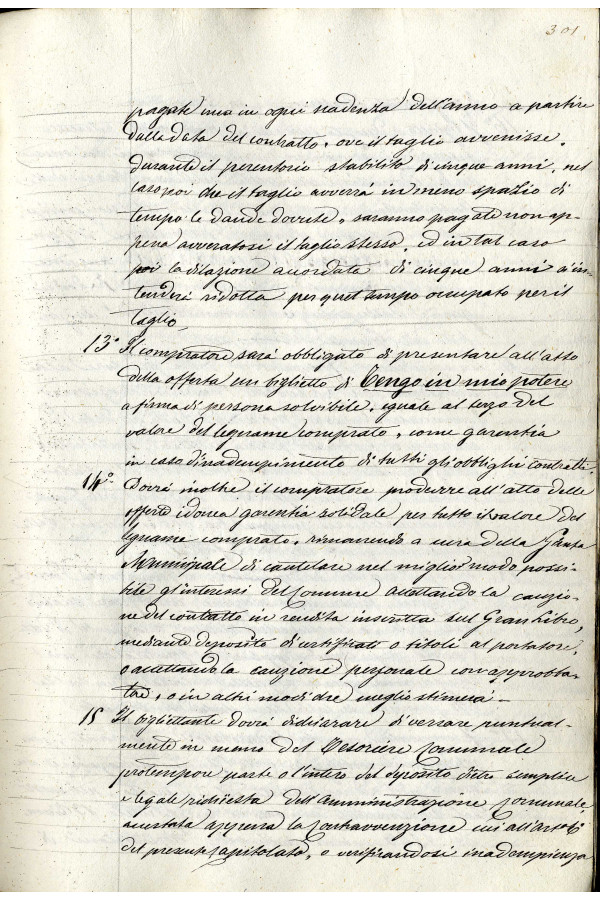 301
pagate una in ogni scadenza dell'anno a partire
dalla data del contratto, ove il taglio avvenisse
durante il perentorio stabilito di cinque anni, nel
caso poi che il taglio avverrà in meno spazio di
tempo le dande dovute, saranno pagate non ap-
pena avveratosi il taglio stesso, ed in tal caso
poi la dilazione accordata di cinque anni s'in-
tenderà ridotta per quel tempo occupato per il
taglio,
13° Il compratore sarà obbligato di presentare all'atto
della offerta un biglietto di Tengo in mio potere
a firma di persona solvibile, iguale al terzo del
valore del legname comprato, come garentia
in caso d'inadempimento di tutti gli obblighi contratti.
14° Dovrà inoltre il compratore produrre all'atto delle
offerte idonea garentia solidale per tutto il valore del
legname comprato, rimanendo a cura della Giunta
Municipale di cautelare nel miglior modo possi-
bile gl'interessi del Comune accettando la cauzio-
ne del contratto in rendita inscritta sul Gran Libro,
mediante deposito di certificati o titoli al portatore,
o accettando la cauzione personale con approbba-
tore, o in altri modi che meglio stimerà.
15 Il bigliettante dovrà dichiarare di versare puntual-
mente in mano del Tesoriere Comunale
protempore parte o l'intero del deposito dietro semplice
e legale richiesta dell'Amministrazione Comunale
accertata appena la contravvenzione cui all'arto 6
del presente Capitolato, o verificandosi inadempienza